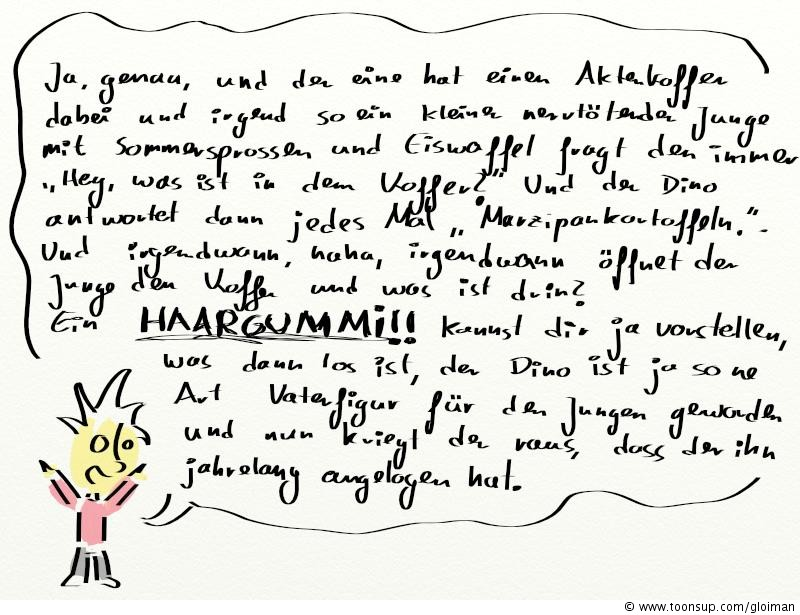 Ja, genau, und der eine hat einen Aktenkoffer
dabei und irgend so ein kleiner nervtötender Junge
mit Sommersprossen und Eiswaffel fragt den immer
„Hey, was ist in dem Koffer?“ Und der Dino
antwortet dann jedes Mal „Marzipankartoffeln.“.
Und irgendwann, haha, irgendwann öffnet der
Junge den Koffer und was ist drin?
Ein HAARGUMMI!!! kannst dir ja vorstellen,
was dann los ist, der Dino ist ja so ne
Art Vaterfigur für den Jungen geworden
und nun kriegt der raus, dass der ihn
jahrelang angelogen hat.
© www.toonsup.com/gloiman